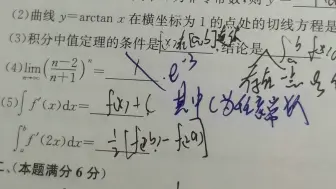 (2)曲线 y=arctan x 在横坐标为 1 的点处的切线方程是
(3)积分中值定理的条件是 f(x)在[a,b]连续 结论是
(4) lim n→∞ ((n-2)/(n+1))^n = e^-3
(5)∫ f′(x)dx= f(x)+C 其中C为任意常数
∫_a^b f′(2x)dx= 1/2[f(2b)-f(2a)]
二、(本题满分 6 分)